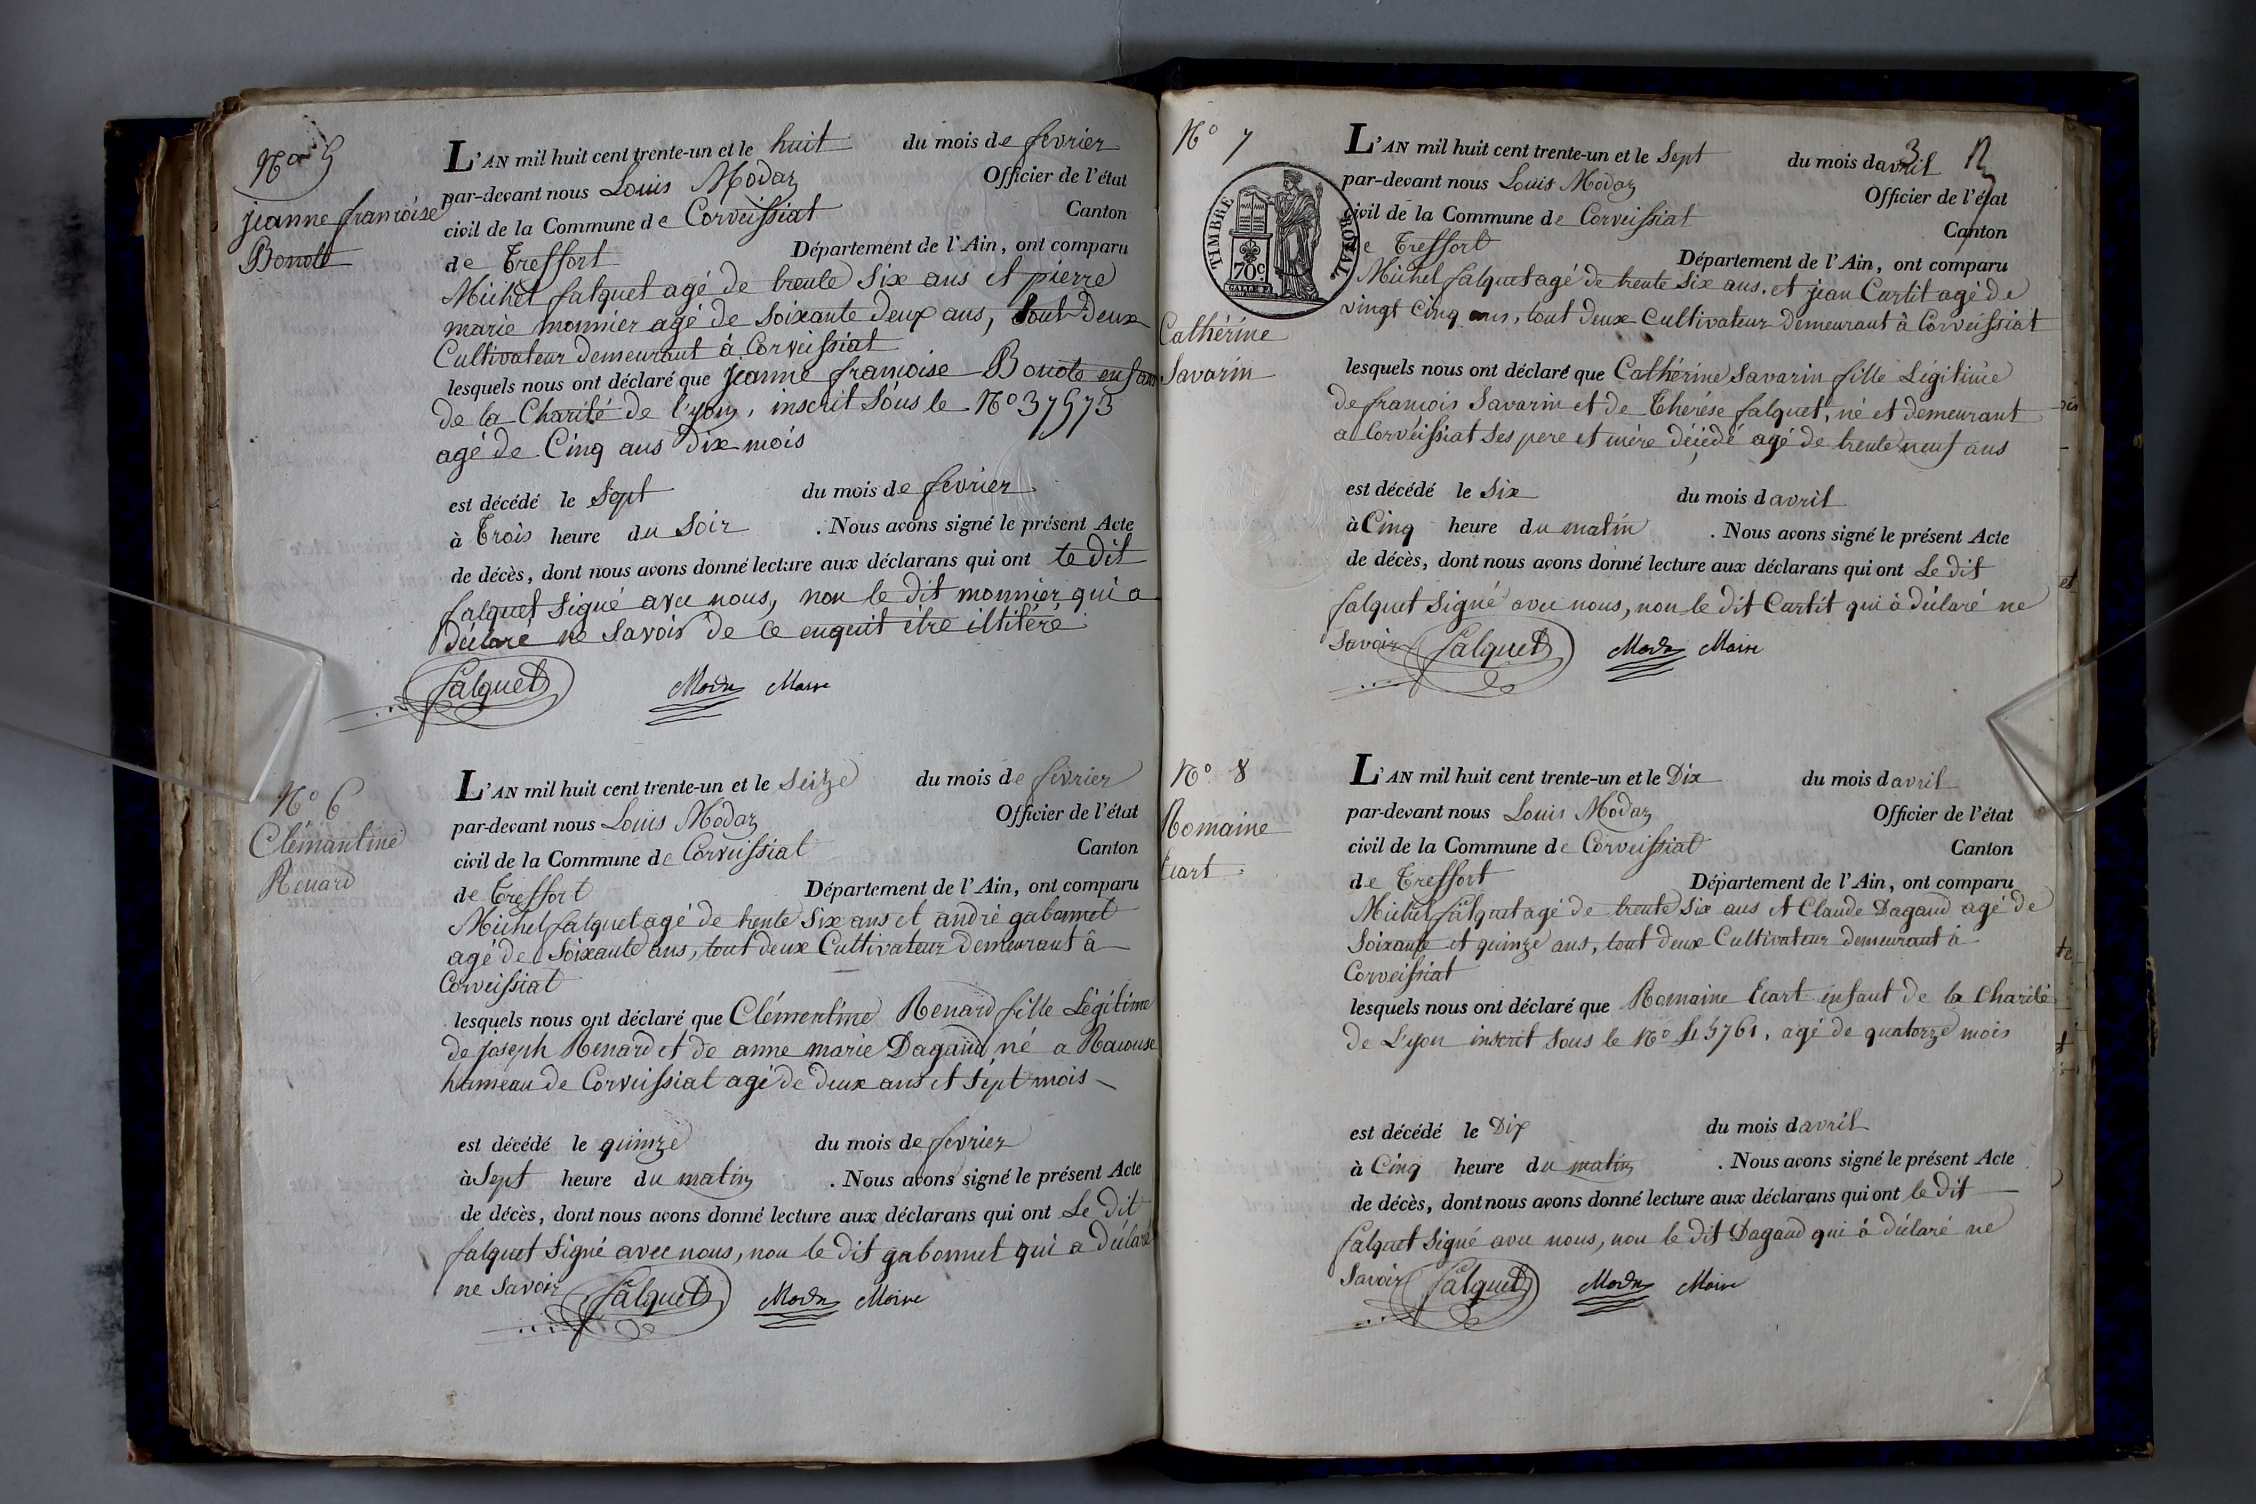 No 5
jeanne francoise
Bonott
L'AN mil huit cent trente-un et le huit du mois de fevrier
par-devant nous Louis Modaz Officier de l'état
civil de la Commune de Corveissiat Canton
de Treffort Département de l'Ain, ont comparu
Michel falquet agé de trente Six ans et pierre
marie monnier agé de Soixante deux ans, tout deux
Cultivateur demeurant à Corveissiat
lesquels nous ont déclaré que jeanne francoise Bonote enfant
de la Charité de Lyon, inscrit Sous le No 37573
agé de Cinq ans dix mois
est décédé le Sept du mois de fevrier
à Trois heure du Soir . Nous avons signé le présent Acte
de décès, dont nous avons donné lecture aux déclarans qui ont le dit
falquet Signé avec nous, non le dit monnier qui a
déclaré ne Savoir de ce enquit être illitéré
Falquet Modaz Maire
No 6
Clémantine
Renard
L'AN mil huit cent trente-un et le Seize du mois de fevrier
par-devant nous Louis Modaz Officier de l'état
civil de la Commune de Corveissiat Canton
de Treffort Département de l'Ain, ont comparu
Michel falquet agé de trente Six ans et andré gabonnet
agé de Soixante ans, tout deux Cultivateur demeurant à
Corveissiat
lesquels nous ont déclaré que Clémentine Renard fille Légitime
de joseph Renard et de anne marie Dagaud, né a Racouse
hameau de Corveissiat agé de deux ans et sept mois
est décédé le quinze du mois de fevrier
à Sept heure du matin . Nous avons signé le présent Acte
de décès, dont nous avons donné lecture aux déclarans qui ont Le dit
falquet Signé avec nous, non le dit gabonnet qui a déclaré
ne Savoir Falquet Modaz Maire
No 7
TIMBRE ROYAL
70c
Cathérine
Savarin
3
L'AN mil huit cent trente-un et le Sept du mois davril
par-devant nous Louis Modaz Officier de l'état
civil de la Commune de Corveissiat Canton
de Treffort Département de l'Ain, ont comparu
Michel falquet agé de trente Six ans, et jean Curtit agé de
vingt Cinq ans, tout deux Cultivateur demeurant à Corveissiat
lesquels nous ont déclaré que Cathérine Savarin fille Légitime
de francois Savarin et de Thérése falquet, né et demeurant
a Corveissiat ses pere et mère décédé agé de trente neuf ans
est décédé le Six du mois davril
à Cinq heure du matin . Nous avons signé le présent Acte
de décès, dont nous avons donné lecture aux déclarans qui ont Le dit
falquet Signé avec nous, non le dit Curtit qui à déclaré ne
Savoir Falquet Modaz Maire
No 8
Romaine
Ecart
L'AN mil huit cent trente-un et le Dix du mois davril
par-devant nous Louis Modaz Officier de l'état
civil de la Commune de Corveissiat Canton
de Treffort Département de l'Ain, ont comparu
Michel falquet agé de trente Six ans et Claude Dagaud agé de
Soixante et quinze ans, tout deux Cultivateur demeurant à
Corveissiat
lesquels nous ont déclaré que Romaine Ecart enfant de la Charité
de Lyon inscrit Sous le No 45761, agé de quatorze mois
est décédé le Dix du mois davril
à Cinq heure du matin . Nous avons signé le présent Acte
de décès, dont nous avons donné lecture aux déclarans qui ont le dit
falquet Signé avec nous, non le dit Dagaud qui à déclaré ne
Savoir Falquet Modaz Maire